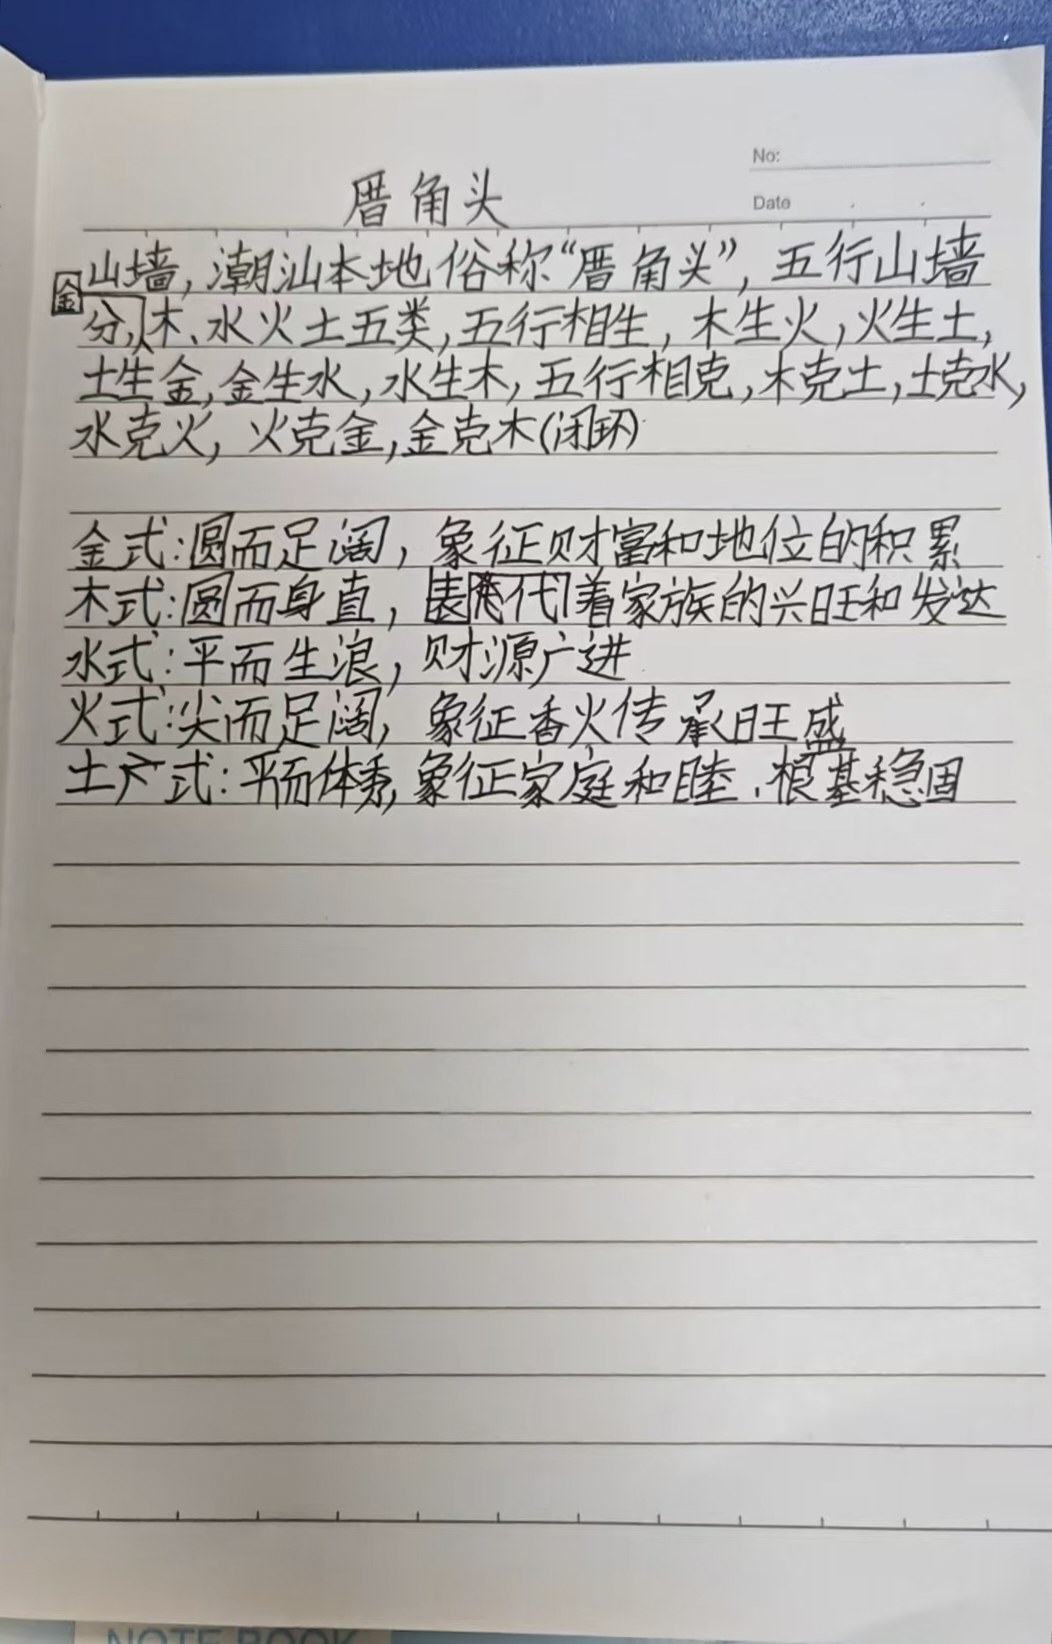 No:
Date
厝角头
山墙,潮汕本地俗称“厝角头”,五行山墙
分,金木、水火土五类,五行相生,木生火,火生土,
土生金,金生水,水生木,五行相克,木克土,土克水,
水克火,火克金,金克木(闭环)
金式:圆而足阔,象征财富和地位的积累
木式:圆而身直,代表着家族的兴旺和发达
水式:平而生浪,财源广进
火式:尖而足阔,象征香火传承旺盛
土式:平而体秀,象征家庭和睦、根基稳固
NOTE BOOK